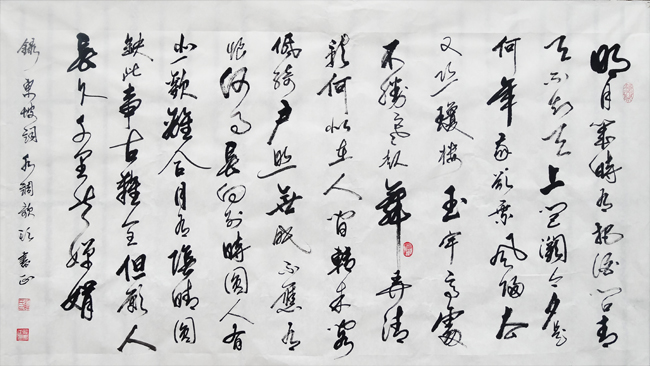 明月幾時有把酒問青
天不知天上宮闕今夕是
何年我欲乘風歸去
又恐瓊樓玉宇高處
不勝寒起舞弄清
影何似在人間轉朱閣
低綺户照無眠不應有
恨何事長向別時圓人有
悲歡離合月有陰晴圓
缺此事古難全但願人
長久千里共嬋娟
錄東坡詞水調歌頭